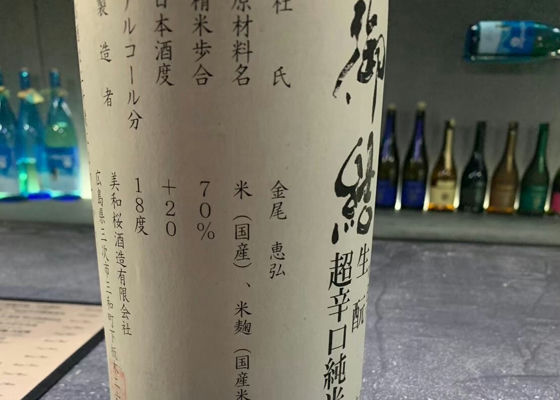 生酛
超辛口純米
杜氏 金尾 恵弘
原材料名 米（国産）、米麹（国産米
精米歩合 70％
日本酒度 ＋20
アルコール分 18度
製造者 美和桜酒造有限会社
広島県三次市三和町下板木